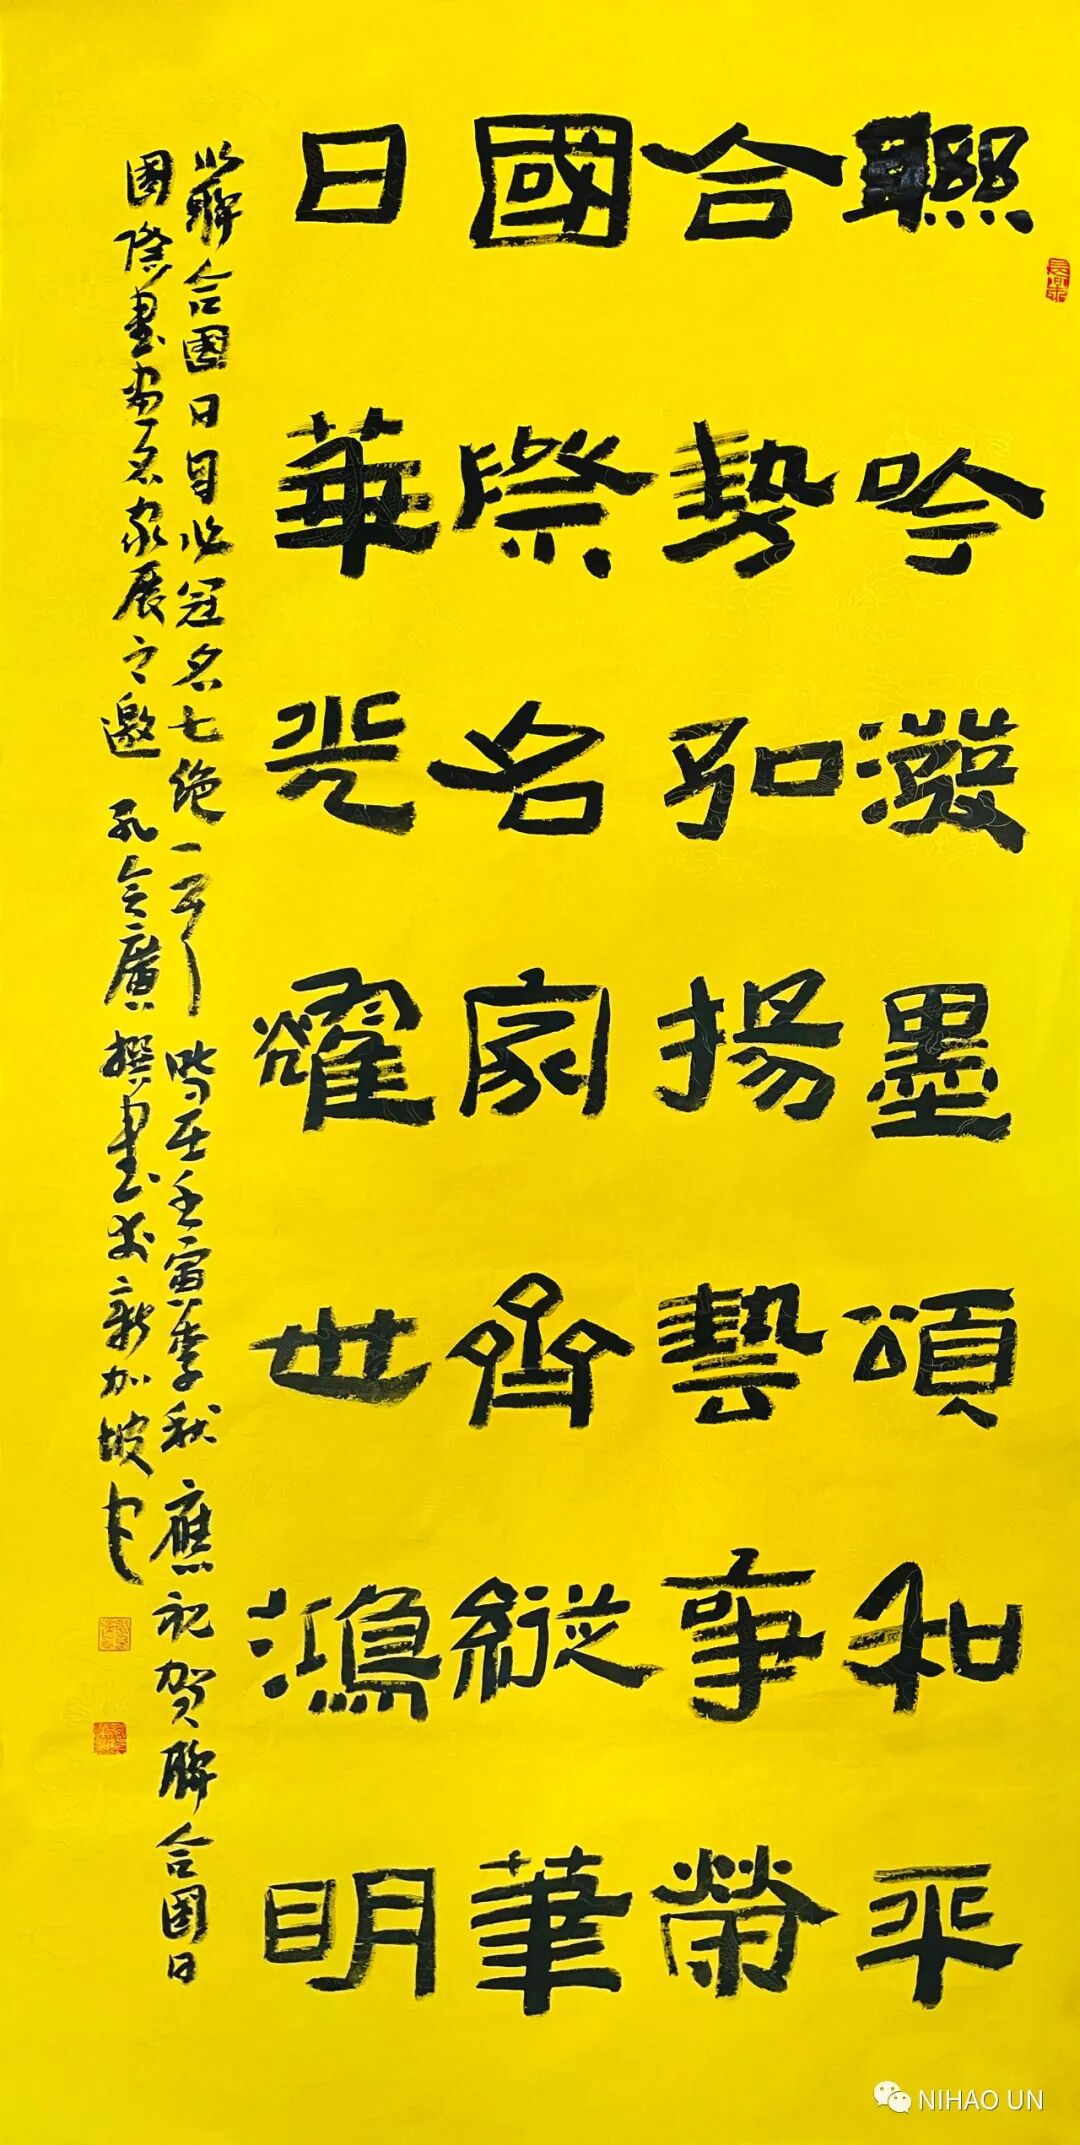 聯吟潑墨頌和平
合勢弘揚藝事榮
國際名家齊縱筆
日華光耀世鴻明
以聯合國日自此冠名七绝一首 時在壬寅季秋應祝贺聯合國日
國際書畫名家展之邀 孔令廣撰書於新加坡
NIHAO UN